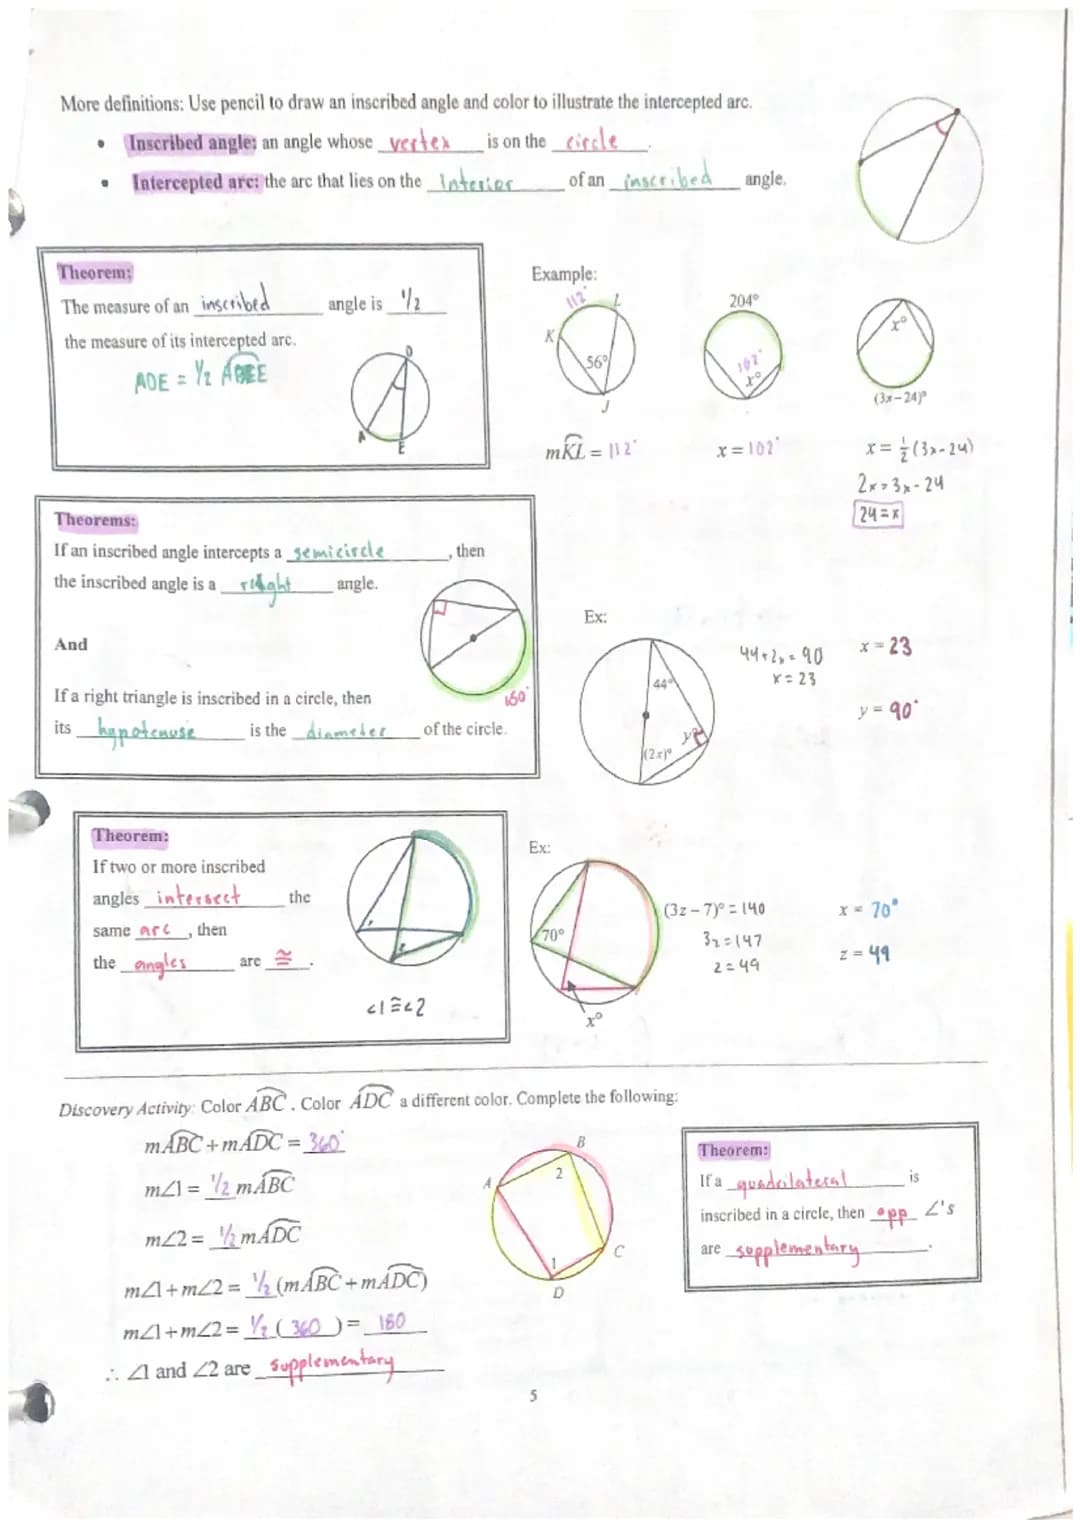 More definitions: Use pencil to draw an inscribed angle and color to illustrate the intercepted arc.
• Inscribed angle: an angle whose vertex is on the circle.
• Intercepted arc: the arc that lies on the Interior of an inscribed angle.
Theorem:
The measure of an inscribed angle is 1/2
the measure of its intercepted arc.
D
A
E
Example:
112°
L
K
56°
J
mKL = 112°
204°
102°
x°
x = 102°
x°
(3x − 24)°
x = 1/2 (3x-24)
2x = 3x - 24
24 = x
Theorems:
If an inscribed angle intercepts a semicircle, then
the inscribed angle is a right angle.
And
If a right triangle is inscribed in a circle, then
its hypotenuse is the diameter of the circle.
180°
Ex:
44°
y°
(2x)°
44+2x = 90
x = 23
x = 23
y = 90°
Theorem:
If two or more inscribed
angles intersect the
same arc, then
the angles are ≅.
<1 ≅ <2
Ex:
70°
x°
(3z − 7)° = 140
3z = 147
z = 49
x = 70°
z = 49
Discovery Activity: Color ABC. Color ADC a different color. Complete the following:
mABC + mADC = 360°
m∠1 = 1/2 mABC
m∠2 = 1/2 mADC
m∠1 + m∠2 = 1/2 (mABC + mADC)
m∠1 + m∠2 = 1/2 (360) = 180
∴ ∠1 and ∠2 are supplementary
A
B
2
C
1
D
Theorem:
If a quadrilateral is
inscribed in a circle, then opp ∠'s
are supplementary.
5